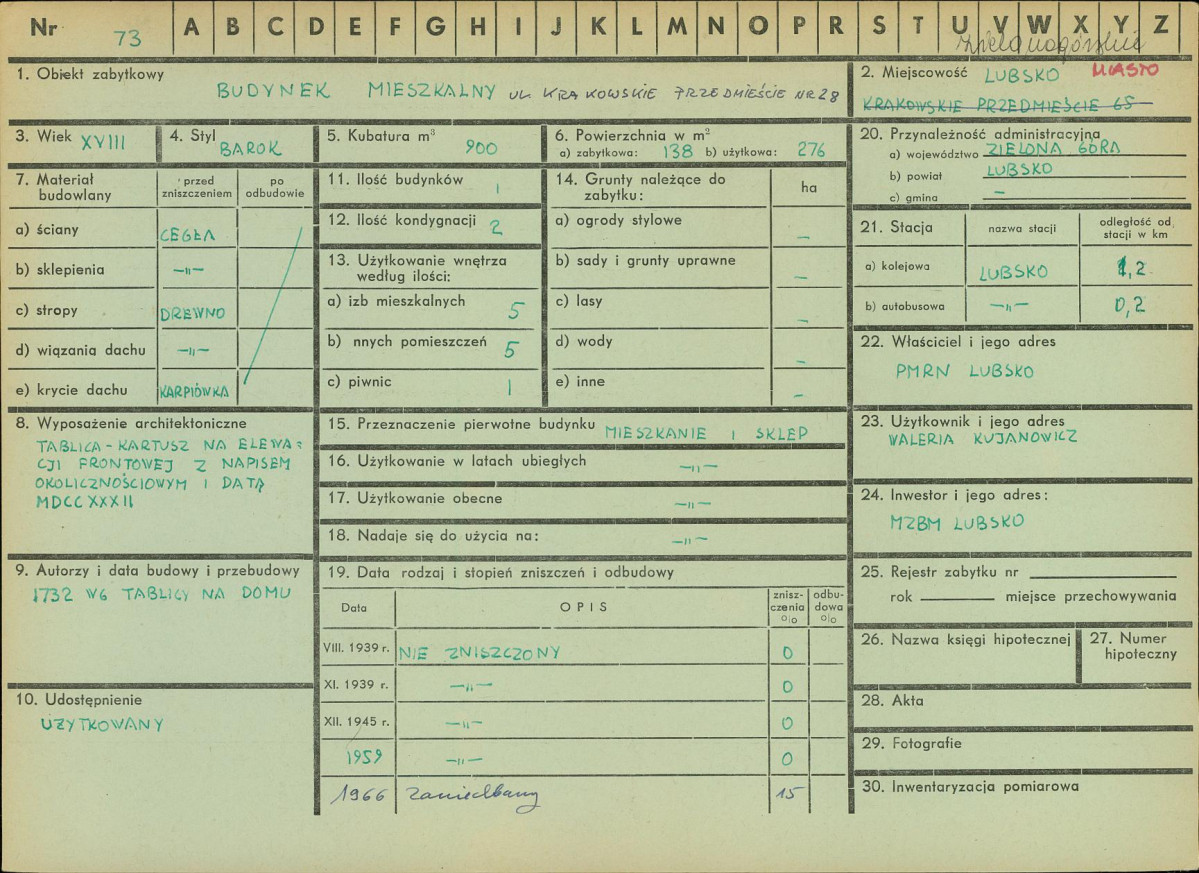 Nr 73 A B C D E F G H I J K L M N O P R S T U V W X Y Z
zielonogórskie
1. Obiekt zabytkowy
BUDYNEK MIESZKALNY UL. KRAKOWSKIE PRZEDMIEŚCIE NR 28
2. Miejscowość LUBSKO MIASTO
KRAKOWSKIE PRZEDMIEŚCIE 65
3. Wiek XVIII
4. Styl BAROK
5. Kubatura m³ 900
6. Powierzchnia w m²
a) zabytkowa: 138 b) użytkowa: 276
7. Materiał budowlany
przed zniszczeniem
po odbudowie
a) ściany CEGŁA
b) sklepienia —„—
c) stropy DREWNO
d) wiązania dachu —„—
e) krycie dachu KARPIÓWKA
8. Wyposażenie architektoniczne
TABLICA - KARTUSZ NA ELEWA=
CJI FRONTOWEJ Z NAPISEM
OKOLICZNOŚCIOWYM I DATĄ
MDCCXXXII
9. Autorzy i data budowy i przebudowy
1732 WG TABLICY NA DOMU
10. Udostępnienie
UŻYTKOWANY
11. Ilość budynków 1
12. Ilość kondygnacji 2
13. Użytkowanie wnętrza
według ilości:
a) izb mieszkalnych 5
b) nnych pomieszczeń 5
c) piwnic 1
14. Grunty należące do
zabytku:
ha
a) ogrody stylowe —
b) sady i grunty uprawne —
c) lasy —
d) wody —
e) inne —
15. Przeznaczenie pierwotne budynku MIESZKANIE I SKLEP
16. Użytkowanie w latach ubiegłych —„—
17. Użytkowanie obecne —„—
18. Nadaje się do użycia na: —„—
19. Data rodzaj i stopień zniszczeń i odbudowy
Data OPIS znisz-czenia o|o odbu-dowa o|o
VIII. 1939 r. NIE ZNISZCZONY 0
XI. 1939 r. —„— 0
XII. 1945 r. —„— 0
1959 —„— 0
1966 zaniedbany 15
20. Przynależność administracyjna
a) województwo ZIELONA GÓRA
b) powiat LUBSKO
c) gmina —
21. Stacja
nazwa stacji
odległość od stacji w km
a) kolejowa LUBSKO 1,2
b) autobusowa —„— 0,2
22. Właściciel i jego adres
PMRN LUBSKO
23. Użytkownik i jego adres
WALERIA KUJANOWICZ
24. Inwestor i jego adres:
MZBM LUBSKO
25. Rejestr zabytku nr
rok miejsce przechowywania
26. Nazwa księgi hipotecznej
27. Numer hipoteczny
28. Akta
29. Fotografie
30. Inwentaryzacja pomiarowa